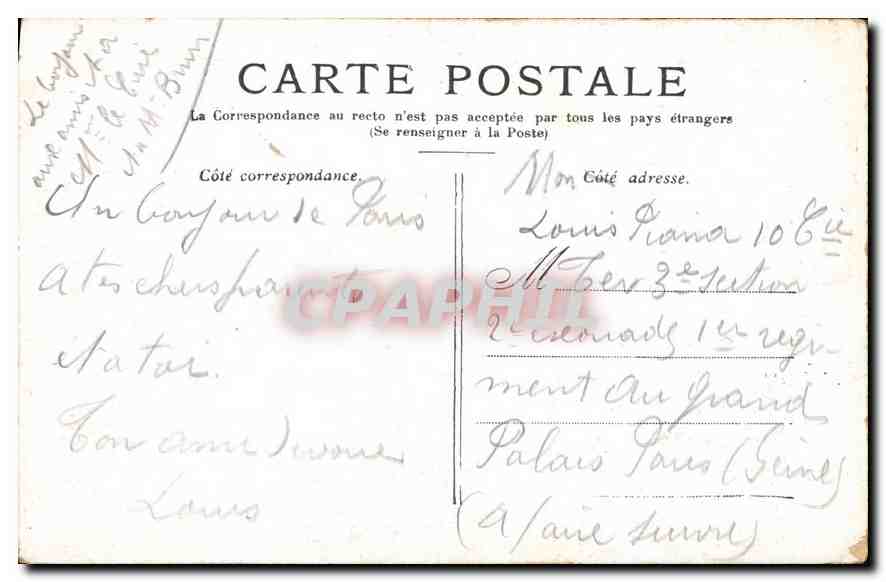 Le bonjour
aux amis et a
Mme le Curé
et a Mr Brun
CARTE POSTALE
La Correspondance au recto n'est pas acceptée par tous les pays étrangers
(Se renseigner à la Poste)
Côté correspondance.
Un bonjour de Paris
a tes chers parents
et a toi.
Ton ami devoue
Louis
Côté adresse.
Mon
Louis Piana 10 Cie
M Ter 3e section
2e escouade 1er regi-
ment au grand
Palais Paris (Seine)
(a faire suivre)
CPAPHIL